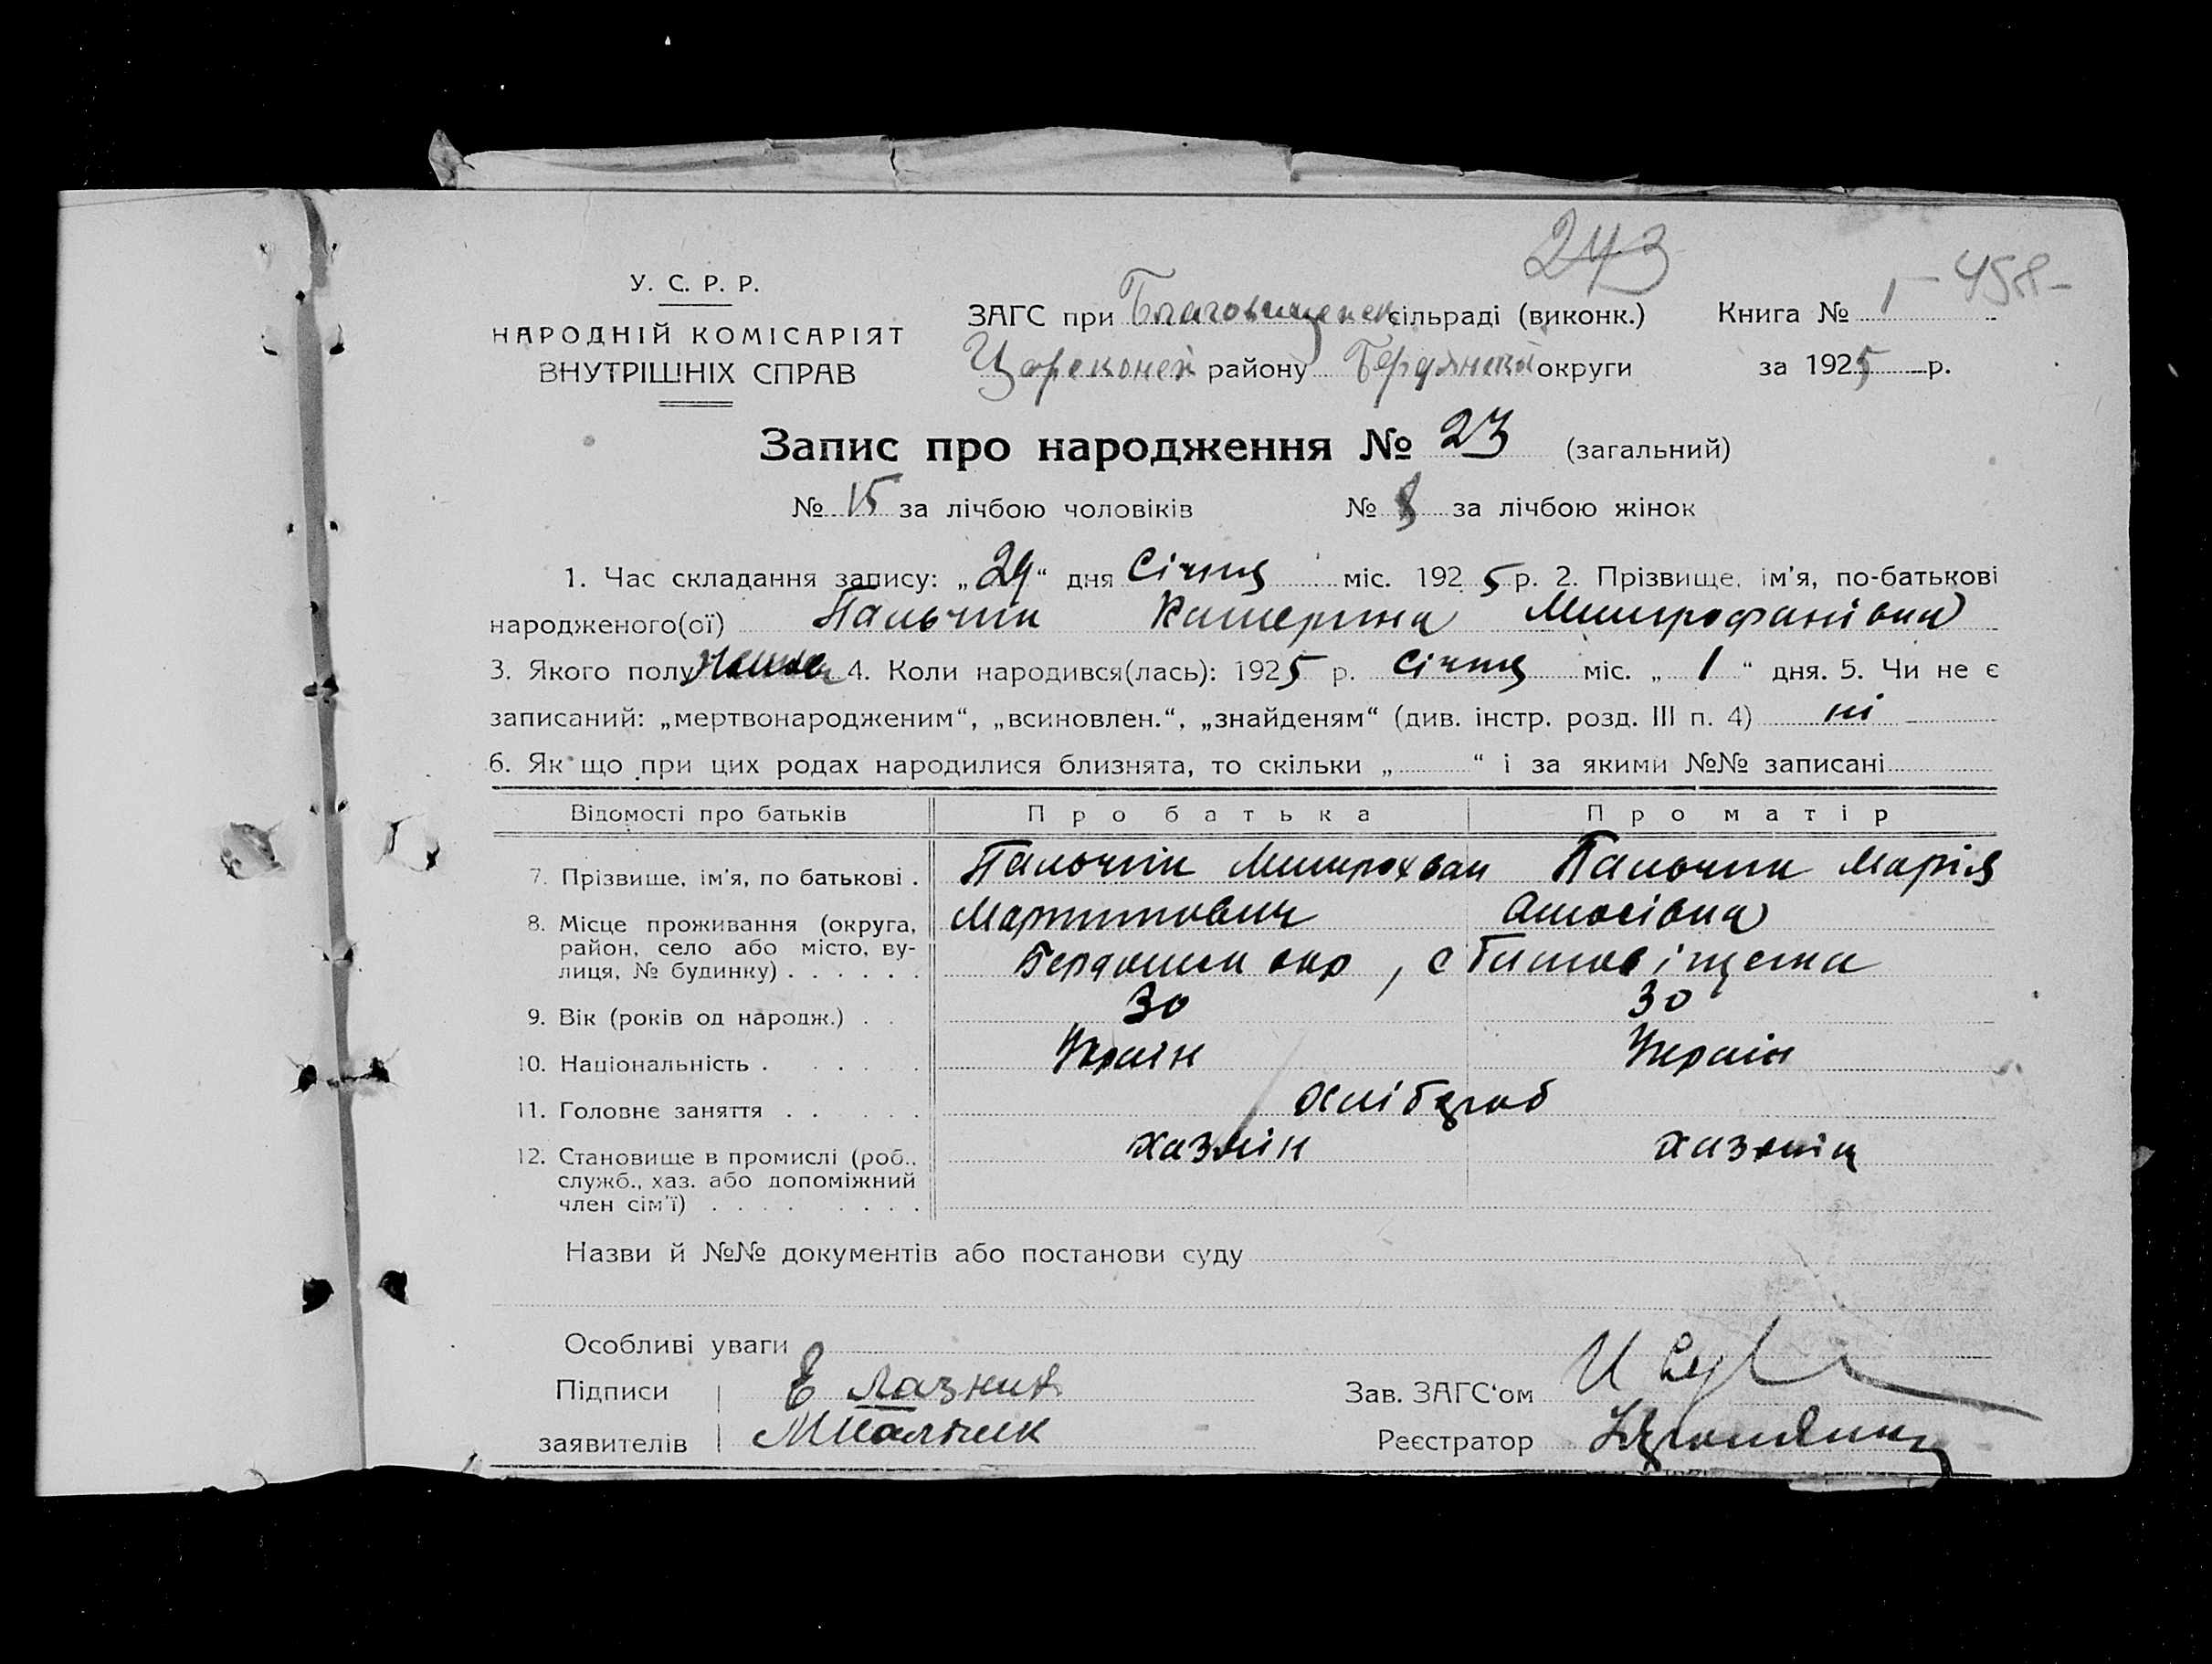 243
У. С. Р. Р.
НАРОДНІЙ КОМІСАРІЯТ
ВНУТРІШНІХ СПРАВ
ЗАГС при Благовищенск сільраді (виконк.) Книга № 1 -458-
району Бердянськ округи за 1925 р.
Запис про народження № 23 (загальний)
№ 15 за лічбою чоловіків № 8 за лічбою жінок
1. Час складання запису: „29“ дня Січня міс. 1925 р. 2. Прізвище, ім'я, по-батькові
народженого(ої) Пальчик Катерина Митрофанівна
3. Якого полу 4. Коли народився(лась): 1925 р. Січня міс. „1“ дня. 5. Чи не є
записаний: „мертвонародженим“, „всиновлен.“, „знайденям“ (див. інстр. розд. III п. 4) ні
6. Як що при цих родах народилися близнята, то скільки „ “ і за якими №№ записані
Відомості про батьків Про батька Про матір
7. Прізвище, ім'я, по батькові . Пальчик Митрохван Пальчик Марія
8. Місце проживання (округа, Мартинович
район, село або місто, ву-
лиця, № будинку) . . . . . . окр , с
9. Вік (років од народж.) . . 30 30
10. Національність . . . . . . Україн Україн
11. Головне заняття . . . . . Хлібороб
12. Становище в промислі (роб., хазяін хазяін
служб., хаз. або допоміжний
член сім'ї) . . . . . . . .
Назви й №№ документів або постанови суду
Особливі уваги
Підписи Е Лазник Зав. ЗАГС'ом
заявителів МПальчик Реєстратор